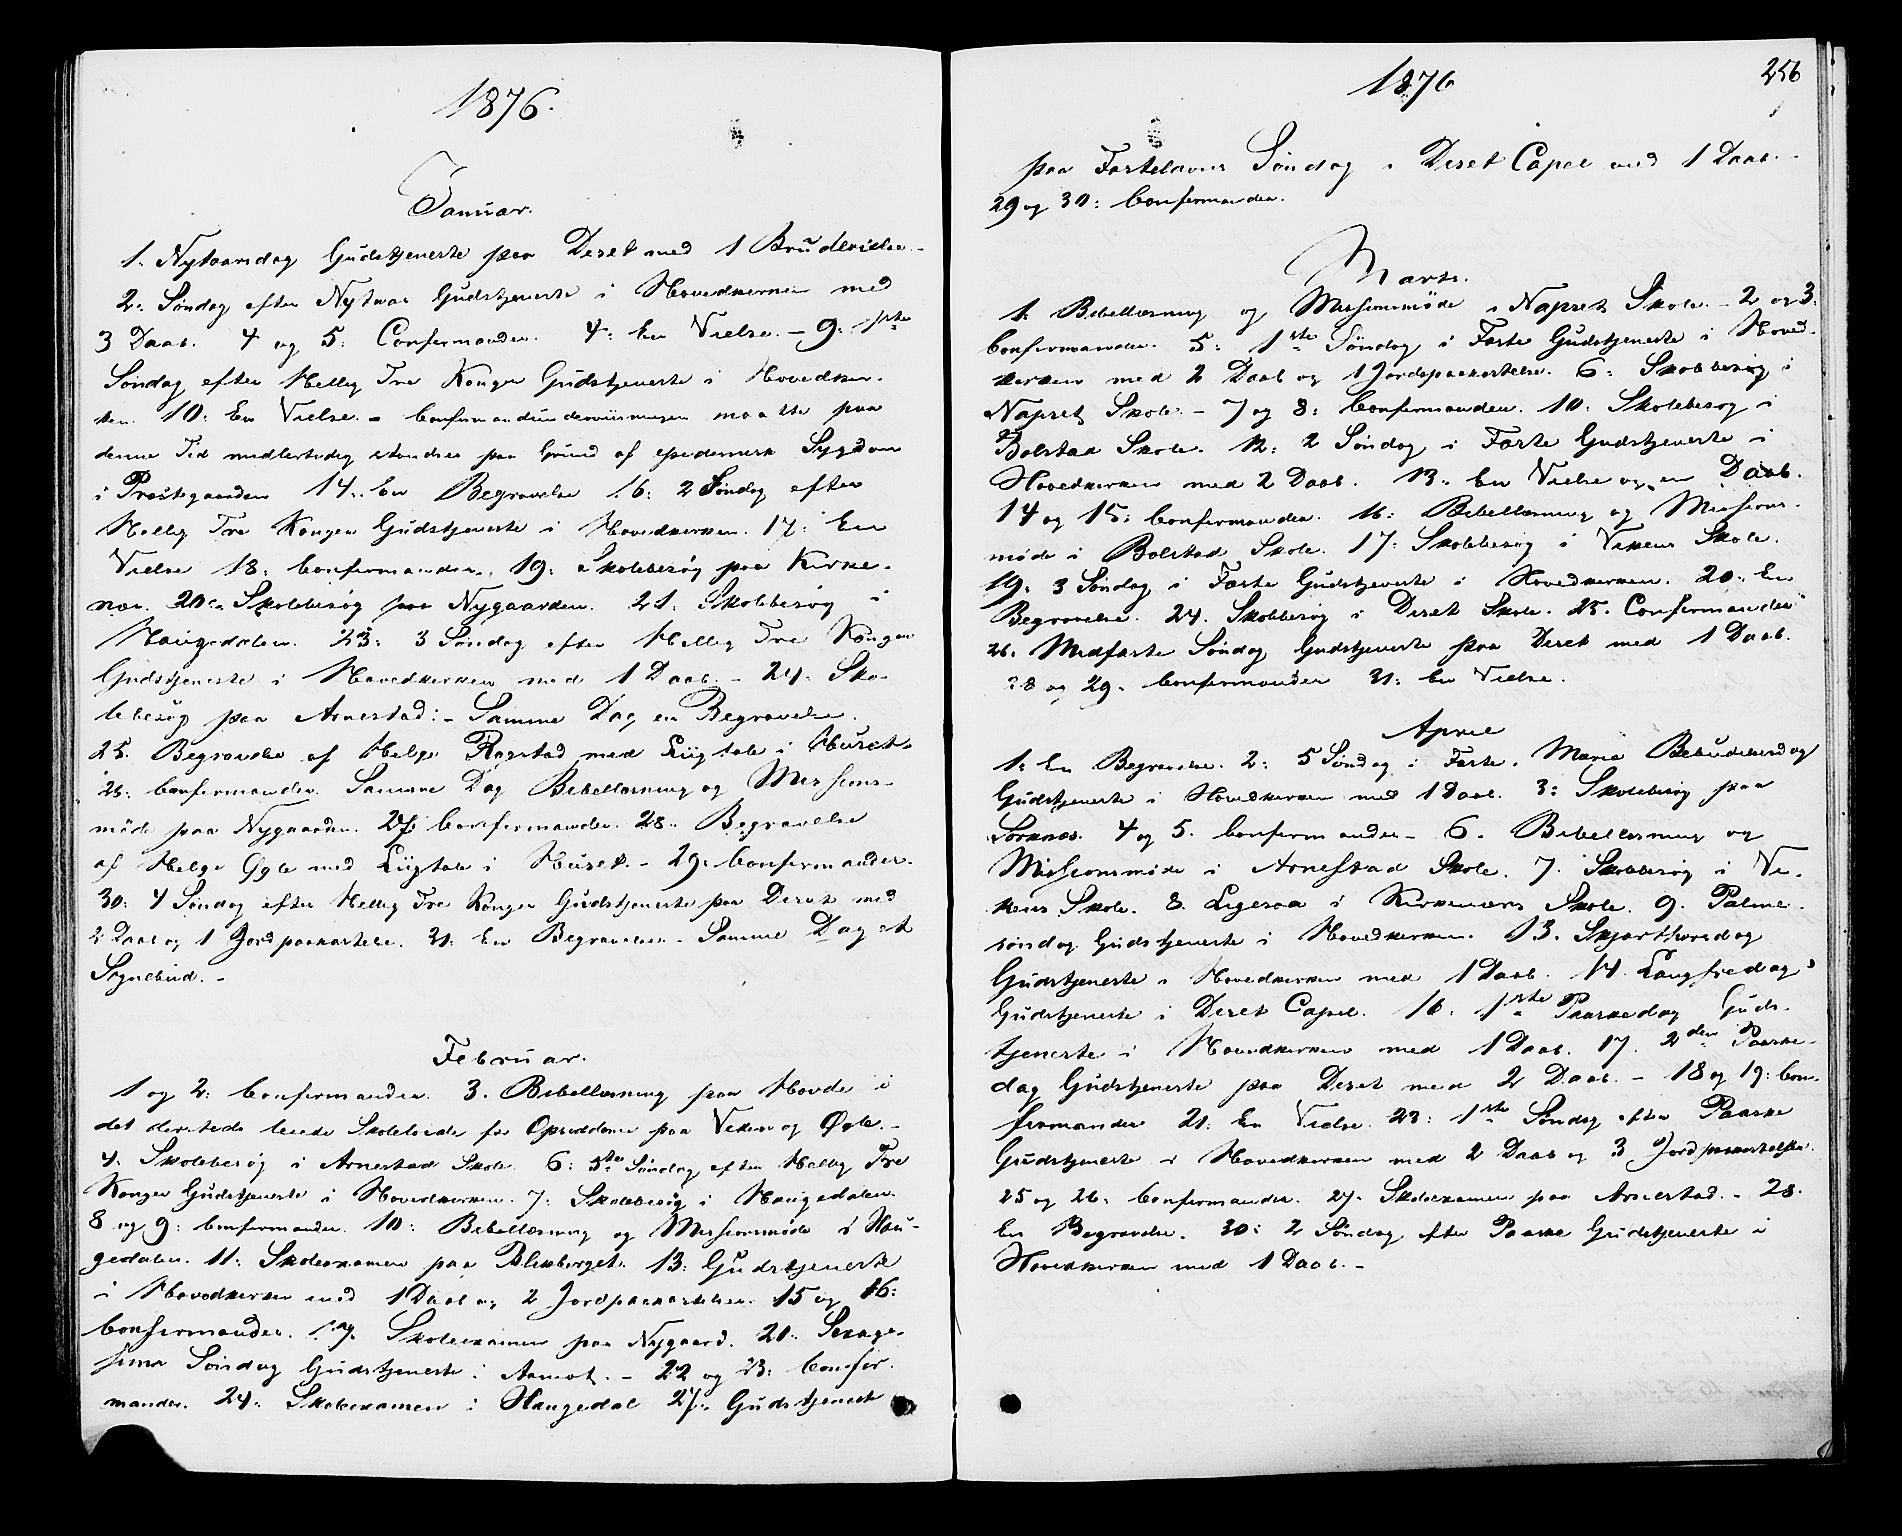 1876.
Januar.
1. Nytaarsdag Gudstjeneste paa Deset med 1 Brudevielse.-
2: Søndag efter Nytaar Gudstjeneste i Hovedkirken med
3 Daab. 4 og 5: Confirmander. 4: En Vielse. - 9: 1ste
Søndag efter Hellig Tre Konger Gudstjeneste i Hovedkir-
ken. 10: En Vielse. - Confirmandundervisningen maatte paa
denne Tid midlertidig standses paa Grund af epidemisk Sygdom
i Præstegaarden 14: En Begravelse 16: 2 Søndag efter
Hellig Tre Konger Gudstjeneste i Hovedkirken. 17: En
Vielse 18: Confirmander. 19: Skolebesøg paa Kirke-
nær. 20: Skolebesøg paa Nygaarden. 21: Skolebesøg i
Haugedalen. 23: 3 Søndag efter Hellig Tre Konger
Gudstjeneste i Hovedkirken med 1 Daab. - 24: Sko-
lebesøg paa Arnestad: - Samme Dag en Begravelse.
25. Begravelse af Helge Rogstad med Liigtale i Huset.
26: Confirmander. Samme Dag Bibellæsning og Missions-
møde paa Nygaarden. 27: Confirmander. 28: Begravelse
af Helge Øgle med Liigtale i Huset. - 29: Confirmander.
30: 4 Søndag efter Hellig Tre Konger Gudstjeneste paa Deset med
2 Daab og 1 Jordpaakastelse. 31: En Begravelse - Samme Dag et
Sognebud. -
Februar.
1 og 2: Confirmander. 3. Bibellæsning paa Hovde i
det dersteds leiede Skolelocale for Opsiddere paa Viken og Øgle. -
4: Skolebesøg i Arnestad Skole 6: 5te Søndag efter Hellig Tre
Konger Gudstjeneste i Hovedkirken. 7: Skolebesøg i Haugedalen.
8 og 9: Confirmander. 10: Bibellæsning og Missionsmøde i Hau-
gedalen. 11: Skoleexamen paa Blikberget. 13: Gudstjeneste
i Hovedkirken med 1 Daab og 2 Jordpaakastelser. 15 og 16:
Confirmander. 17. Skoleexamen paa Nygaard. 20: Sexage-
sima Søndag Gudstjeneste i Aamot. - 22 og 23: Confir-
mander. 24: Skoleexamen i Haugedal 27: Gudstjenest
1876
256
paa Fastelavns Søndag i Deset Capel med 1 Daab. -
29 og 30: Confirmander.
Marts.
1: Bibellæsning og Missionsmøde i Næpset Skole. - 2 og 3:
Confirmander. 5: 1ste Søndag i Faste Gudstjeneste i Hoved-
kirken med 2 Daab og 1 Jordspaakastelse. 6: Skolebesøg i
Næpset Skole. - 7 og 8: Confirmander. 10: Skolebesøg i
Bolstad Skole. 12: 2 Søndag i Faste Gudstjeneste i
Hovedkirken med 2 Daab. 13: En Vielse og en Daab.
14 og 15: Confirmander. 16: Bibellæsning og Missions-
møde i Bolstad Skole. 17: Skolebesøg i Vikens Skole.
19: 3 Søndag i Faste Gudstjeneste i Hovedkirken. 20: En
Begravelse. 24. Skolebesøg i Deset Skole. 25. Confirmander
26. Midfaste Søndag Gudstjeneste paa Deset med 1 Daab.
28 og 29. Confirmander 31: En Vielse.
April
1: En Begravelse. 2: 5 Søndag i Faste. Maria Bebudelsesdag
Gudstjeneste i Hovedkirken med 1 Daab. 3: Skolebesøg paa
Sorknæs. 4 og 5. Confirmander - 6. Bibellæsning og
Missionsmøde i Arnestad Skole. 7. Skolebesøg i Vi-
kens Skole. 8. Ligesaa i Kirkenærs Skole. 9. Palme-
søndag Gudstjeneste i Hovedkirken. 13. Skjærthorsdag
Gudstjeneste i Hovedkirken med 1 Daab. 14. Langfredag
Gudstjeneste i Deset Capel. 16. 1ste Paaskedag Guds-
tjeneste i Hovedkirken med 1 Daab. 17. 2den Paaske-
dag Gudstjeneste paa Deset med 2 Daab. - 18 og 19: Con-
firmander 21: En Vielse. 23: 1ste Søndag efter Paaske
Gudstjeneste i Hovedkirken med 2 Daab og 3 Jordpaakastelser.
25 og 26: Confirmander. 27. Skoleexamen paa Arnestad. - 28.
En Begravelse. 30: 2 Søndag efter Paaske Gudstjeneste i
Hovedkirken med 1 Daab. -